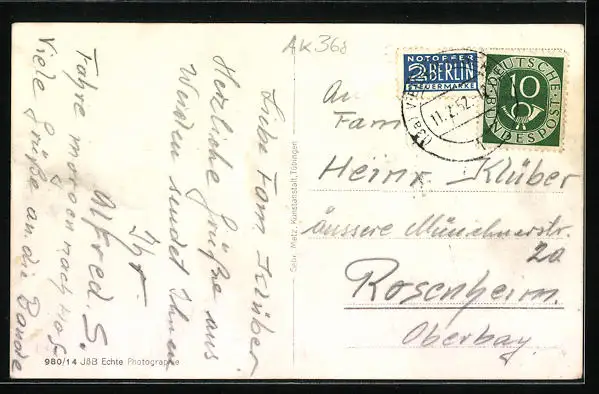 AK 368
NOTOPFER
2 BERLIN
STEUERMARKE
DEUTSCHE
BUNDESPOST
10
11.2.52
An
Fam
Heinr Klüber
äussere Münchnerstr.
20
Rosenheim
Oberbay.
Liebe Fam. Klüber
Herzliche Grüße aus
sendet Ihnen
Ihr
Alfred S.
Fahre morgen nach Hof
Viele Grüße an die Bande
Gebr. Metz, Kunstanstalt, Tübingen
980/14 J&B Echte Photographie